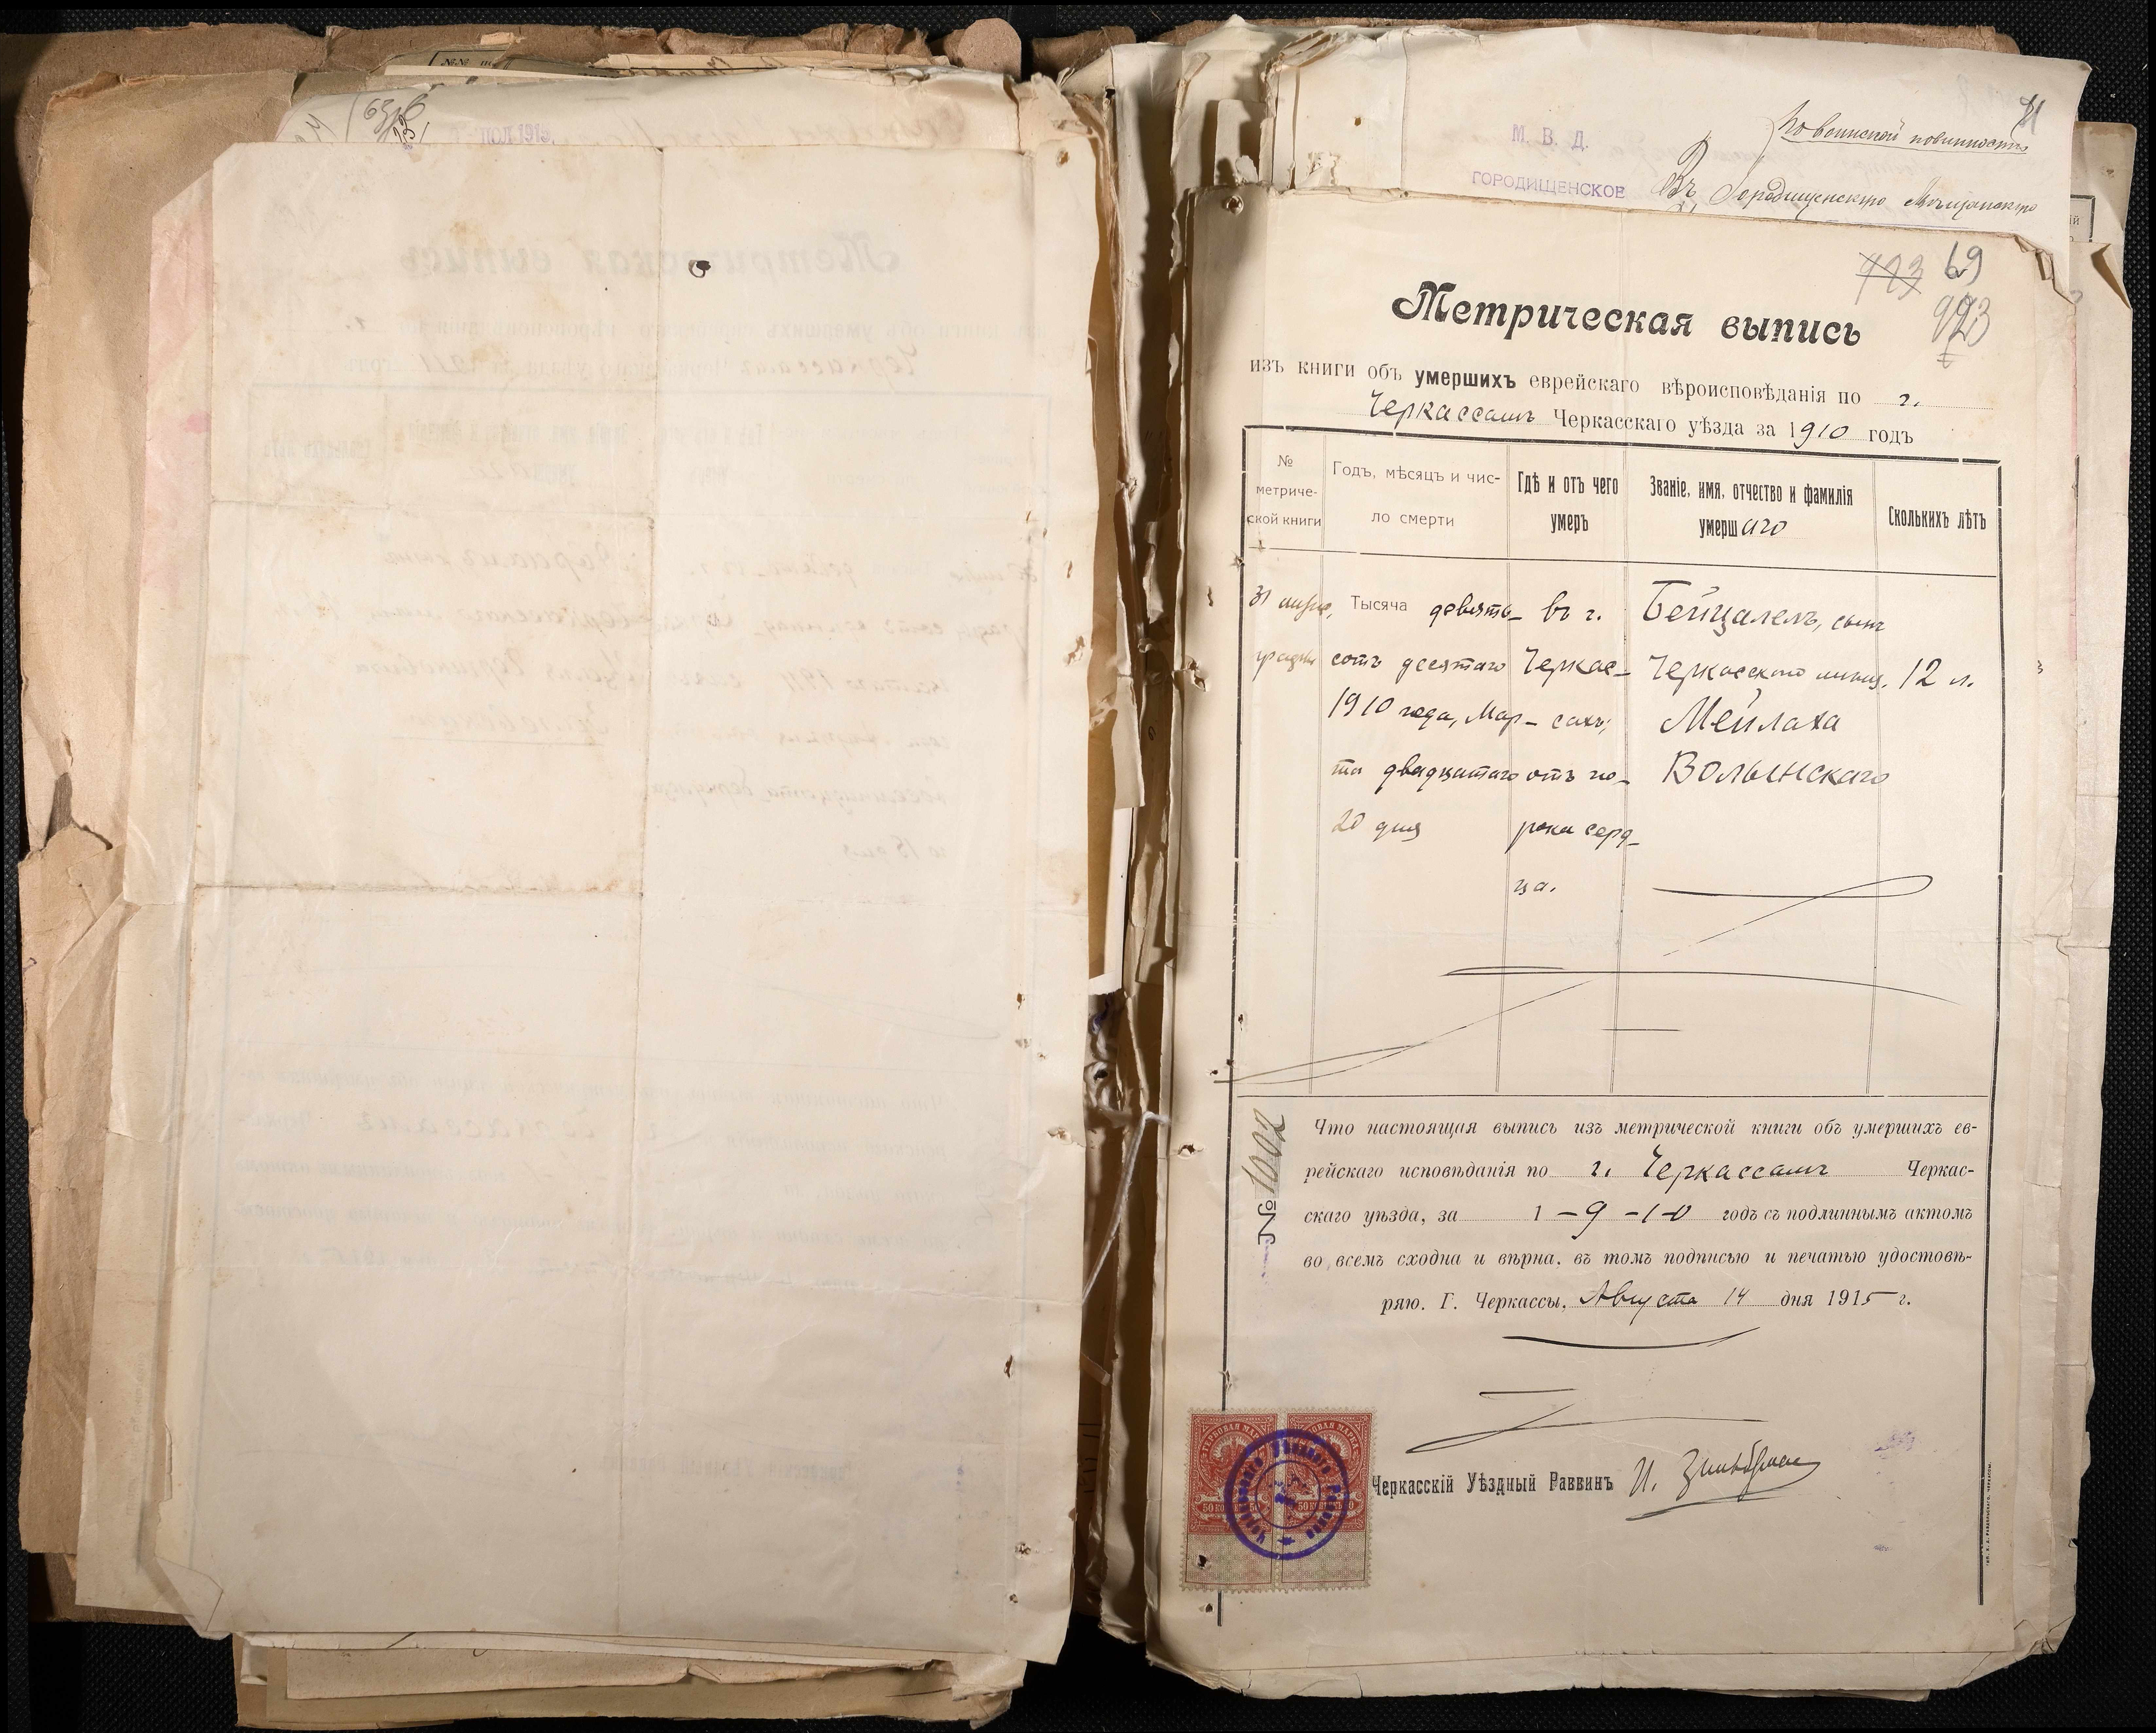 По воинской повинности
М. В. Д.
ГОРОДИЩЕНСКОЕ
Въ Городищенскую Мѣщанскую
71
69
923
Метрическая выпись
изъ книги объ умершихъ еврейскаго вѣроисповѣданія по г.
Черкассамъ Черкасскаго уѣзда за 1910 годъ
№ метриче-ской книги
Годъ, мѣсяцъ и чис-ло смерти
Гдѣ и отъ чего умеръ
Званіе, имя, отчество и фамилія умершаго
Сколькихъ лѣтъ
31
Тысяча девять-
сотъ десятаго
1910 года, Мар-
та двадцатаго
20 дня
въ г.
Черкас-
сахъ;
отъ по-
рока серд-
ца.
Бейцалель, сынъ
Черкасскаго мѣщ.
Мейлаха
Волынскаго
12 л.
№ 1002
Что настоящая выпись изъ метрической книги объ умершихъ ев-
рейскаго исповѣданія по г. Черкассамъ Черкас-
скаго уѣзда, за 1-9-1-0 годъ съ подлиннымъ актомъ
во всемъ сходна и вѣрна, въ томъ подписью и печатью удостовѣ-
ряю. Г. Черкассы, Августа 14 дня 1915 г.
ГЕРБОВАЯ МАРКА
ГЕРБОВАЯ МАРКА
Черкасскій Уѣздный Раввинъ И.